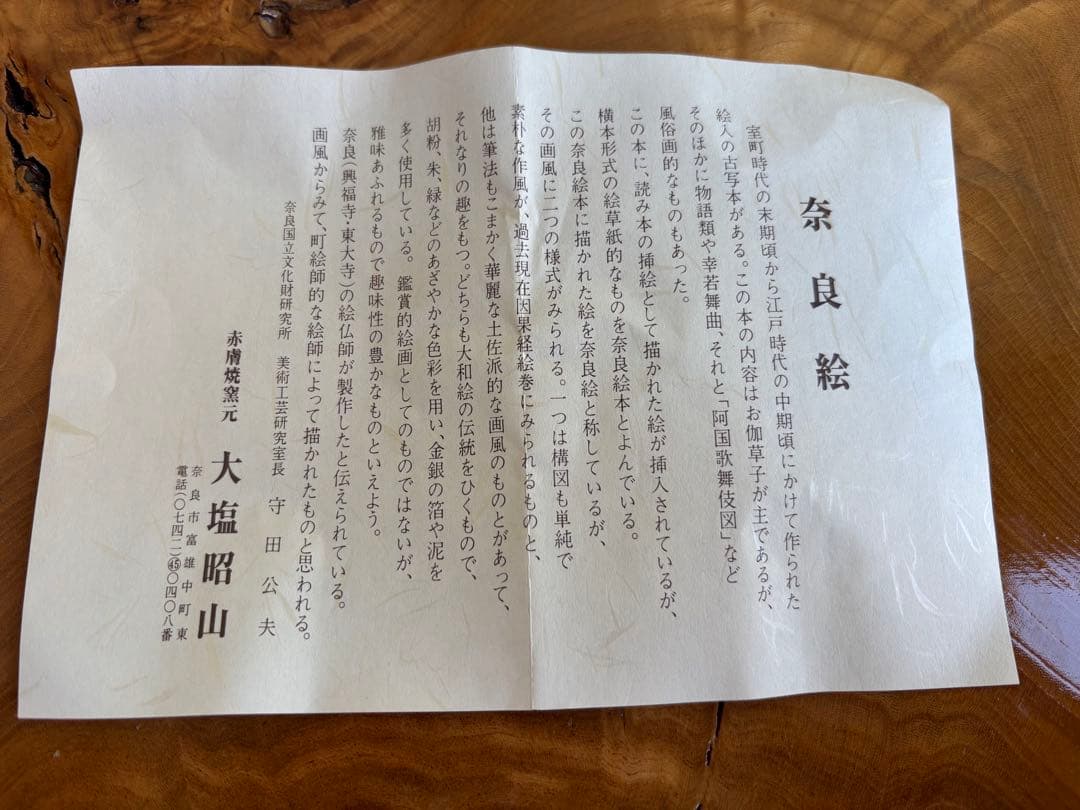 奈良絵
室町時代の末期頃から江戸時代の中期頃にかけて作られた
絵入の古写本がある。この本の内容はお伽草子が主であるが、
そのほかに物語類や幸若舞曲、それと「阿国歌舞伎図」など
風俗画的なものもあった。
この本に、読み本の挿絵として描かれた絵が挿入されているが、
横本形式の絵草紙的なものを奈良絵本とよんでいる。
この奈良絵本に描かれた絵を奈良絵と称しているが、
その画風に二つの様式がみられる。一つは構図も単純で
素朴な作風が、過去現在因果経絵巻にみられるものと、
他は筆法もこまかく華麗な土佐派的な画風のものとがあって、
それなりの趣をもつ。どちらも大和絵の伝統をひくもので、
胡粉、朱、緑などのあざやかな色彩を用い、金銀の箔や泥を
多く使用している。鑑賞的絵画としてのものではないが、
雅味あふれるもので趣味性の豊かなものといえよう。
奈良(興福寺・東大寺)の絵仏師が製作したと伝えられている。
画風からみて、町絵師的な絵師によって描かれたものと思われる。
奈良国立文化財研究所 美術工芸研究室長 守田公夫
赤膚焼窯元 大塩昭山
奈良市富雄中町東
電話(〇七四二)㊺〇四〇八番